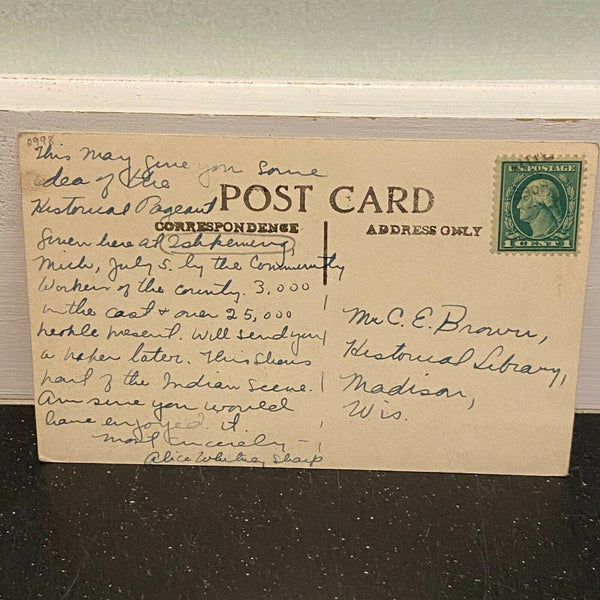 0998
This may give you some
idea of the
Historical Pageant
POST CARD
CORRESPONDENCE
ADDRESS ONLY
given here at Ishpeming,
Mich, July 5. by the Community
Workers of the county. 3,000
in the cast & over 25,000
people present. Will send you
a paper later. This shows
part of the Indian scene.
Am sure you would
have enjoyed it.
Most sincerely -
Alice Whitney Sharp
U.S. POSTAGE
1 CENT 1
Mr C. E. Brown,
Historical Library,
Madison,
Wis.